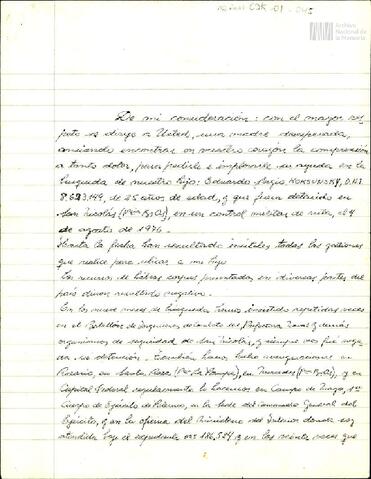 CDR-01-045
Archivo
Nacional de
la Memoria
De mi consideración: con el mayor res
peto se dirige a Usted, una madre desesperada,
ansiando encontrar en vuestro corazón la comprensión
a tanto dolor, para pedirle e implorarle su ayuda en la
búsqueda de nuestro hijo: Eduardo Sergio KORSUNSKY, D.N.I
8.623.149, de 25 años de edad, y que fuera detenido en
San Nicolás (Pcia Bs As), en un control militar de ruta, el 4
de agosto de 1976.
Hasta la fecha han resultado inútiles todas las gestiones
que realicé para ubicar a mi hijo
Los recursos de hábeas corpus presentados en diversas partes del
país dieron resultado negativo.
En los nueve meses de búsqueda hemos insistido repetidas veces
en el Batallón de Ingenieros de Prefectura Naval y demás
organismos de seguridad de San Nicolás, y siempre nos fue nega
da su detención. También hemos hecho averiguaciones en
Rosario, en Santa Rosa (Pcia La Pampa), en Mercedes (Pcia Bs As), y en
Capital Federal regularmente lo hacemos en Campo de Mayo, 1er
Cuerpo de Ejército de Palermo, en la sede del Comando General del
Ejército, y en la oficina del Ministerio del Interior donde soy
atendida bajo el expediente nro 186.527 y en las veinte veces que